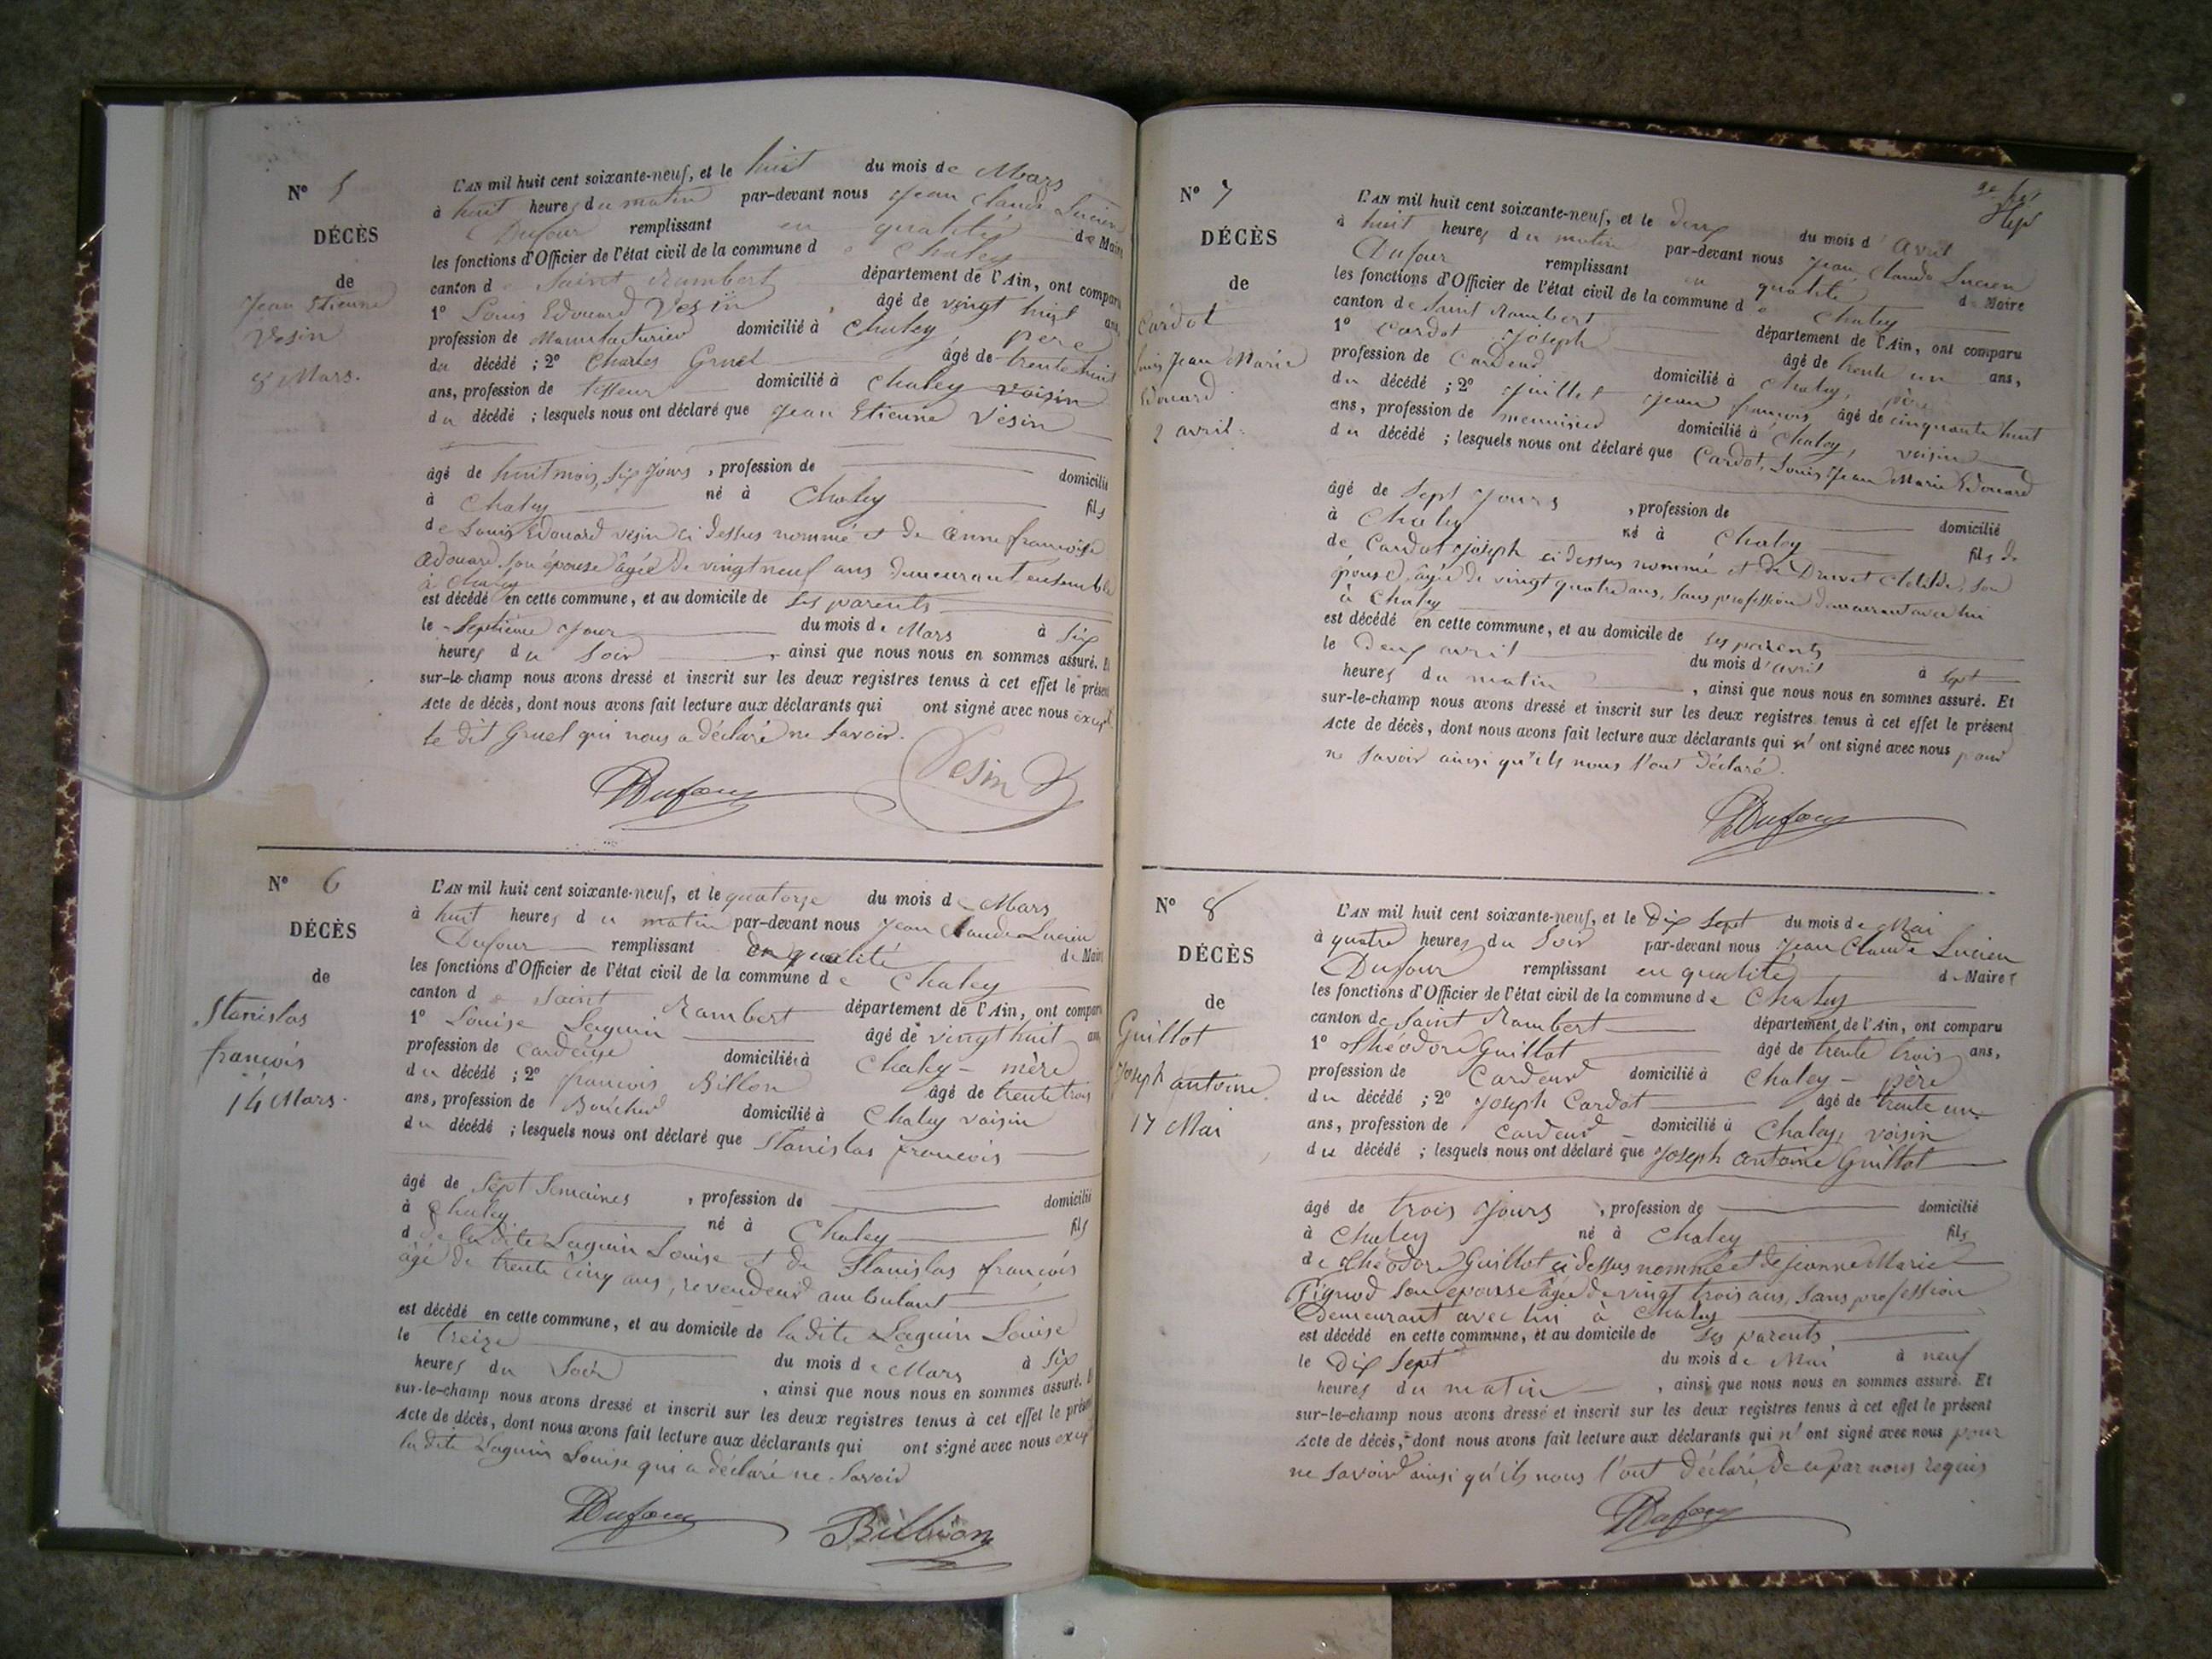 N° 5
DÉCÈS
de
Jean Etienne
Vesin
8 Mars.
L'AN mil huit cent soixante-neuf, et le huit du mois de Mars
à huit heures du matin par-devant nous Jean Claude Lucien
Dufour remplissant en qualité de Maire
les fonctions d'Officier de l'état civil de la commune de Chaley
canton de Saint Rambert département de l'Ain, ont comparu
1° Louis Edouard Vesin, âgé de vingt huit ans
profession de Manufacturier domicilié à Chaley, père
du décédé ; 2° Charles Gruel âgé de trente huit
ans, profession de tisseur domicilié à Chaley voisin
du décédé ; lesquels nous ont déclaré que Jean Etienne Vesin
âgé de huit mois, six jours, profession de domicilié
à Chaley né à Chaley fils
de Louis Edouard Vesin ci dessus nommé et de Anne françoise
Adouard son épouse âgée de vingt neuf ans demeurant ensemble
à Chaley
est décédé en cette commune, et au domicile de ses parents
le Septième Jour du mois de Mars à Six
heures du Soir, ainsi que nous nous en sommes assuré. E
sur-le-champ nous avons dressé et inscrit sur les deux registres tenus à cet effet le présent
Acte de décès, dont nous avons fait lecture aux déclarants qui ont signé avec nous excepté
le dit Gruel qui nous a déclaré ne Savoir.
Dufour Vesin
N° 6
DÉCÈS
de
Stanislas
françois
14 Mars.
L'AN mil huit cent soixante-neuf, et le quatorze du mois de Mars
à huit heures du matin par-devant nous Jean Claude Lucien
Dufour remplissant en qualité de Maire
les fonctions d'Officier de l'état civil de la commune de Chaley
canton de Saint Rambert département de l'Ain, ont comparu
1° Louise Laguin âgé de vingt huit ans
profession de Cardeuse domiciliée à Chaley - mère
du décédé ; 2° françois Billon âgé de trente trois
ans, profession de Boucher domicilié à Chaley voisin
du décédé ; lesquels nous ont déclaré que Stanislas françois
âgé de Sept Semaines, profession de domicilié
à Chaley né à Chaley fils
d de la dite Laguin Louise et de Stanislas françois
âgé de trente cinq ans, revendeur ambulant
est décédé en cette commune, et au domicile de la dite Laguin Louise
le treize du mois de Mars à Six
heures du Soir, ainsi que nous nous en sommes assuré. E
sur-le-champ nous avons dressé et inscrit sur les deux registres tenus à cet effet le présent
Acte de décès, dont nous avons fait lecture aux déclarants qui ont signé avec nous excepté
la dite Laguin Louise qui a déclaré ne Savoir
Dufour Billion
Sept
N° 7
DÉCÈS
de
Cardot
Louis Jean Marie
Edouard.
2 avril.
L'AN mil huit cent soixante-neuf, et le deux du mois d'Avril
à huit heures du matin par-devant nous Jean Claude Lucien
Dufour remplissant en qualité de Maire
les fonctions d'Officier de l'état civil de la commune de Chaley
canton de Saint Rambert département de l'Ain, ont comparu
1° Cardot Joseph âgé de trente un ans,
profession de Cardeur domicilié à Chaley, père
du décédé ; 2° Juillet Jean françois âgé de cinquante huit
ans, profession de menuisier domicilié à Chaley, voisin
du décédé ; lesquels nous ont déclaré que Cardot, Louis Jean Marie Edouard
âgé de Sept Jours, profession de domicilié
à Chaley né à Chaley fils de
de Cardot Joseph ci dessus nommé et de Druvet Clotilde, Son
épouse, âgée de vingt quatre ans, Sans profession demeurant avec lui
à Chaley
est décédé en cette commune, et au domicile de ses parents
le Deux avril du mois d'avril à Sept
heures du matin, ainsi que nous nous en sommes assuré. Et
sur-le-champ nous avons dressé et inscrit sur les deux registres tenus à cet effet le présent
Acte de décès, dont nous avons fait lecture aux déclarants qui n'ont signé avec nous pour
ne Savoir ainsi qu'ils nous l'ont déclaré.
Dufour
N° 8
DÉCÈS
de
Guillot
Joseph antoine.
17 Mai
L'AN mil huit cent soixante-neuf, et le Dix Sept du mois de Mai
à quatre heures du Soir par-devant nous Jean Claude Lucien
Dufour remplissant en qualité de Maire
les fonctions d'Officier de l'état civil de la commune de Chaley
canton de Saint Rambert département de l'Ain, ont comparu
1° Théodore Guillot âgé de trente trois ans,
profession de Cardeur domicilié à Chaley - père
du décédé ; 2° Joseph Cardot âgé de trente un
ans, profession de Cardeur domicilié à Chaley, voisin
du décédé ; lesquels nous ont déclaré que Joseph antoine Guillot
âgé de trois Jours, profession de domicilié
à Chaley né à Chaley fils
de Théodore Guillot ci dessus nommé et de Jeanne Marie
Pignod Son épouse âgée de vingt trois ans, Sans profession
Demeurant avec lui à Chaley
est décédé en cette commune, et au domicile de Ses parents
le Dix Sept du mois de Mai à neuf
heures du matin, ainsi que nous nous en sommes assuré. Et
sur-le-champ nous avons dressé et inscrit sur les deux registres tenus à cet effet le présent
Acte de décès, dont nous avons fait lecture aux déclarants qui n'ont signé avec nous pour
ne Savoir ainsi qu'ils nous l'ont déclaré, de ce par nous requis
Dufour